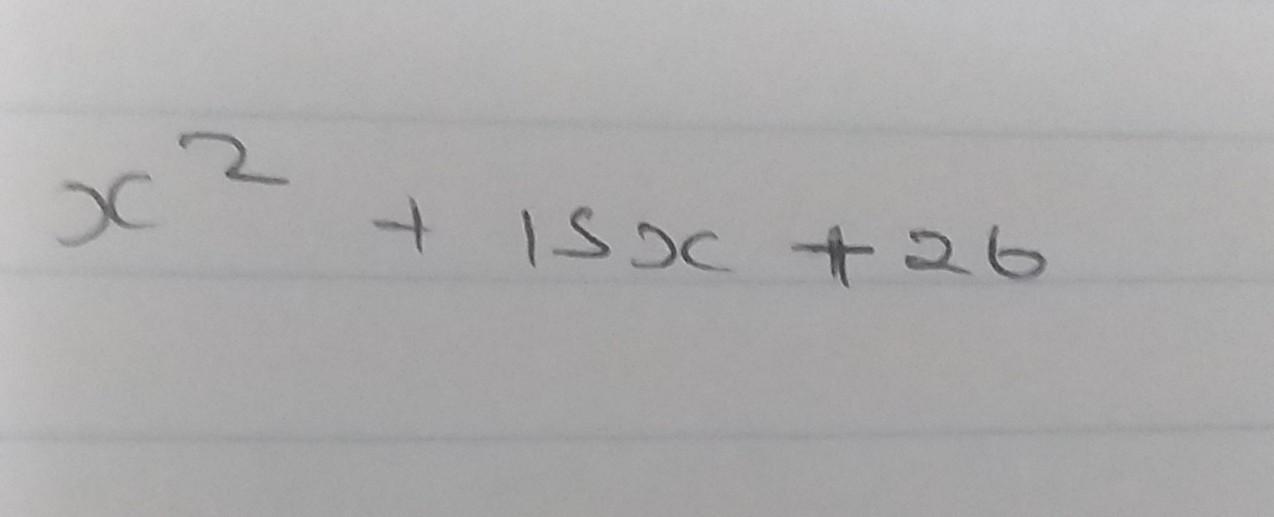 x² + 15x + 26